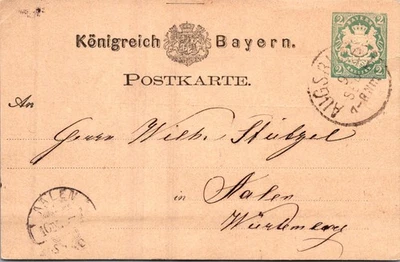 Königreich Bayern.
2 2
AUGSB
POSTKARTE.
An
Herrn Wilh. Stützel
in Aalen
Würtemberg
AALEN